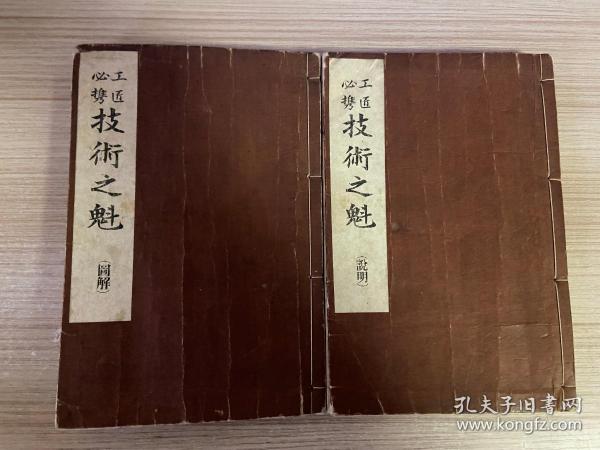 工匠
必携
技術之魁
(圖解)
工匠
必携
技術之魁
(説明)
孔夫子旧书网
www.kongfz.com